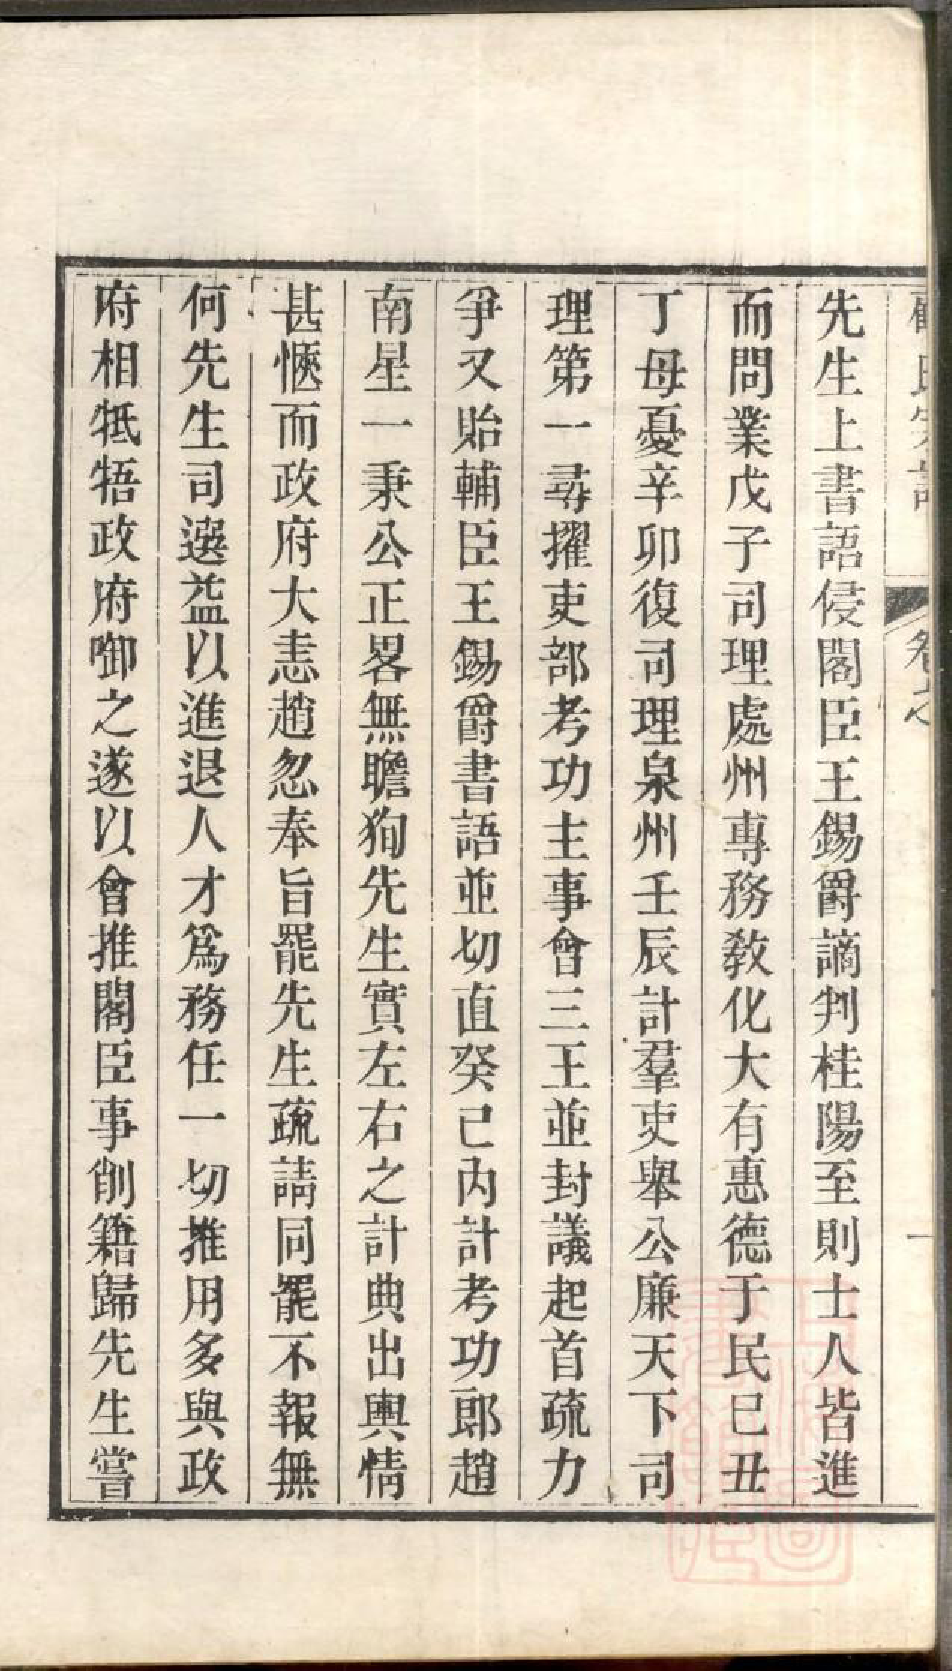 先生上書語侵閣臣王錫爵謫判桂陽至則士人皆進
而問業戊子司理處州專務敎化大有惠德于民已丑
丁母憂辛卯復司理泉州壬辰計羣吏舉公廉天下司
理第一尋擢吏部考功主事會三王並封議起首疏力
爭又貽輔臣王錫爵書語並切直癸已內計考功郎趙
南星一秉公正畧無瞻狥先生實左右之計典出輿情
甚愜而政府大恚趙忽奉旨罷先生疏請同罷不報無
何先生司選益以進退人才爲務任一切推用多與政
府相牴牾政府啣之遂以會推閣臣事削籍歸先生嘗